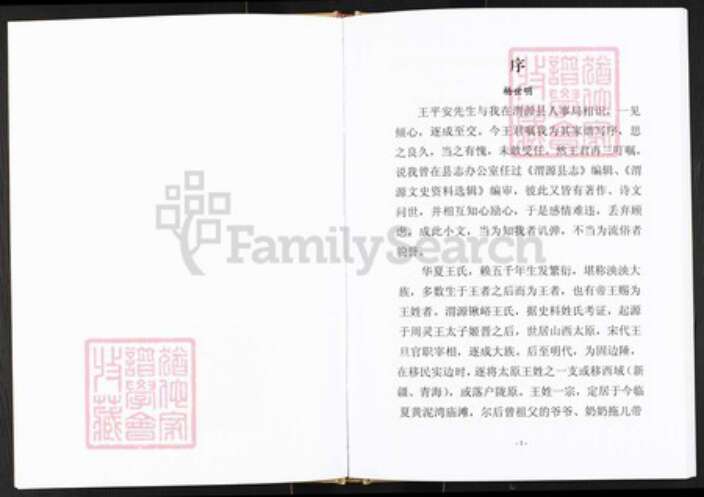 序
杨世明
王平安先生与我在渭源县人事局相识，一见
倾心，遂成至交，今王君嘱我为其家谱写序，思
之良久，当之有愧，未敢受任，然王君再三叮嘱，
说我曾在县志办公室任过《渭源县志》编辑、《渭
源文史资料选辑》编审，彼此又皆有著作、诗文
问世，并相互知心励心，于是感情难违，丢弃顾
虑，成此小文，当为知我者讥弹，不当为流俗者
华夏王氏，赖五千年生发繁衍，堪称泱泱大
族，多数生于王者之后而为王者，也有帝王赐为
王姓者。渭源锹峪王氏，据史料姓氏考证，起源
于周灵王太子姬晋之后，世居山西太原，宋代王
旦官职宰相，遂成大族，后至明代，为固边陲，
在移民实边时，遂将太原王姓之一支或移西域（新
疆、青海），或落户陇原。王姓一宗，定居于今临
夏黄泥湾庙滩，尔后曾祖父的爷爷、奶奶拖儿带
- 1 -
FamilySearch